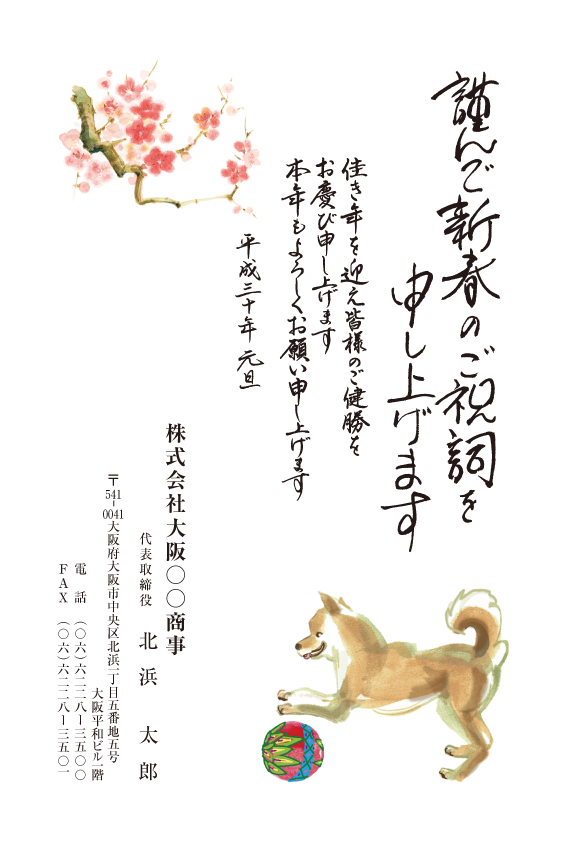 謹んで新春のご祝詞を
申し上げます
佳き年を迎え皆様のご健勝を
お慶び申し上げます
本年もよろしくお願い申し上げます
平成三十年 元旦
株式会社大阪〇〇商事
代表取締役 北浜 太郎
〒541-0041大阪府大阪市中央区北浜一丁目五番地五号
大阪平和ビル一階
電話 (〇六)六二二八ー三五〇〇
FAX (〇六)六二二八ー三五〇一